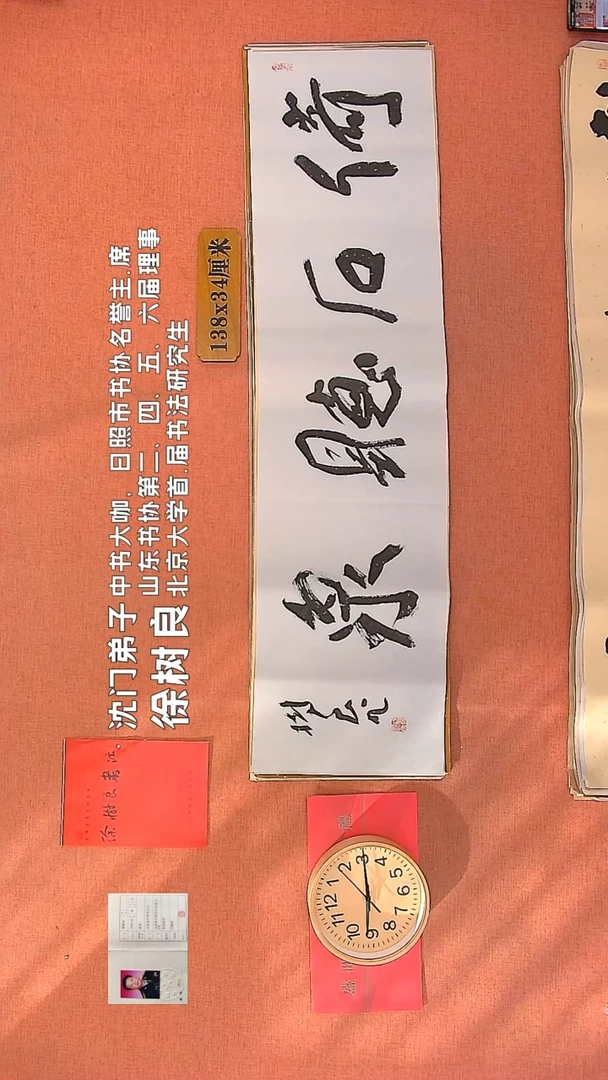 沈门弟子 中书大咖，日照市书协名誉主.席
山东书协第二、四、五、六届理事
徐树良 北京大学首.届书法研究生
138x34厘米
倚石聽泉
樹良
徐樹良書法
12
1
2
3
4
5
6
7
8
9
10
11